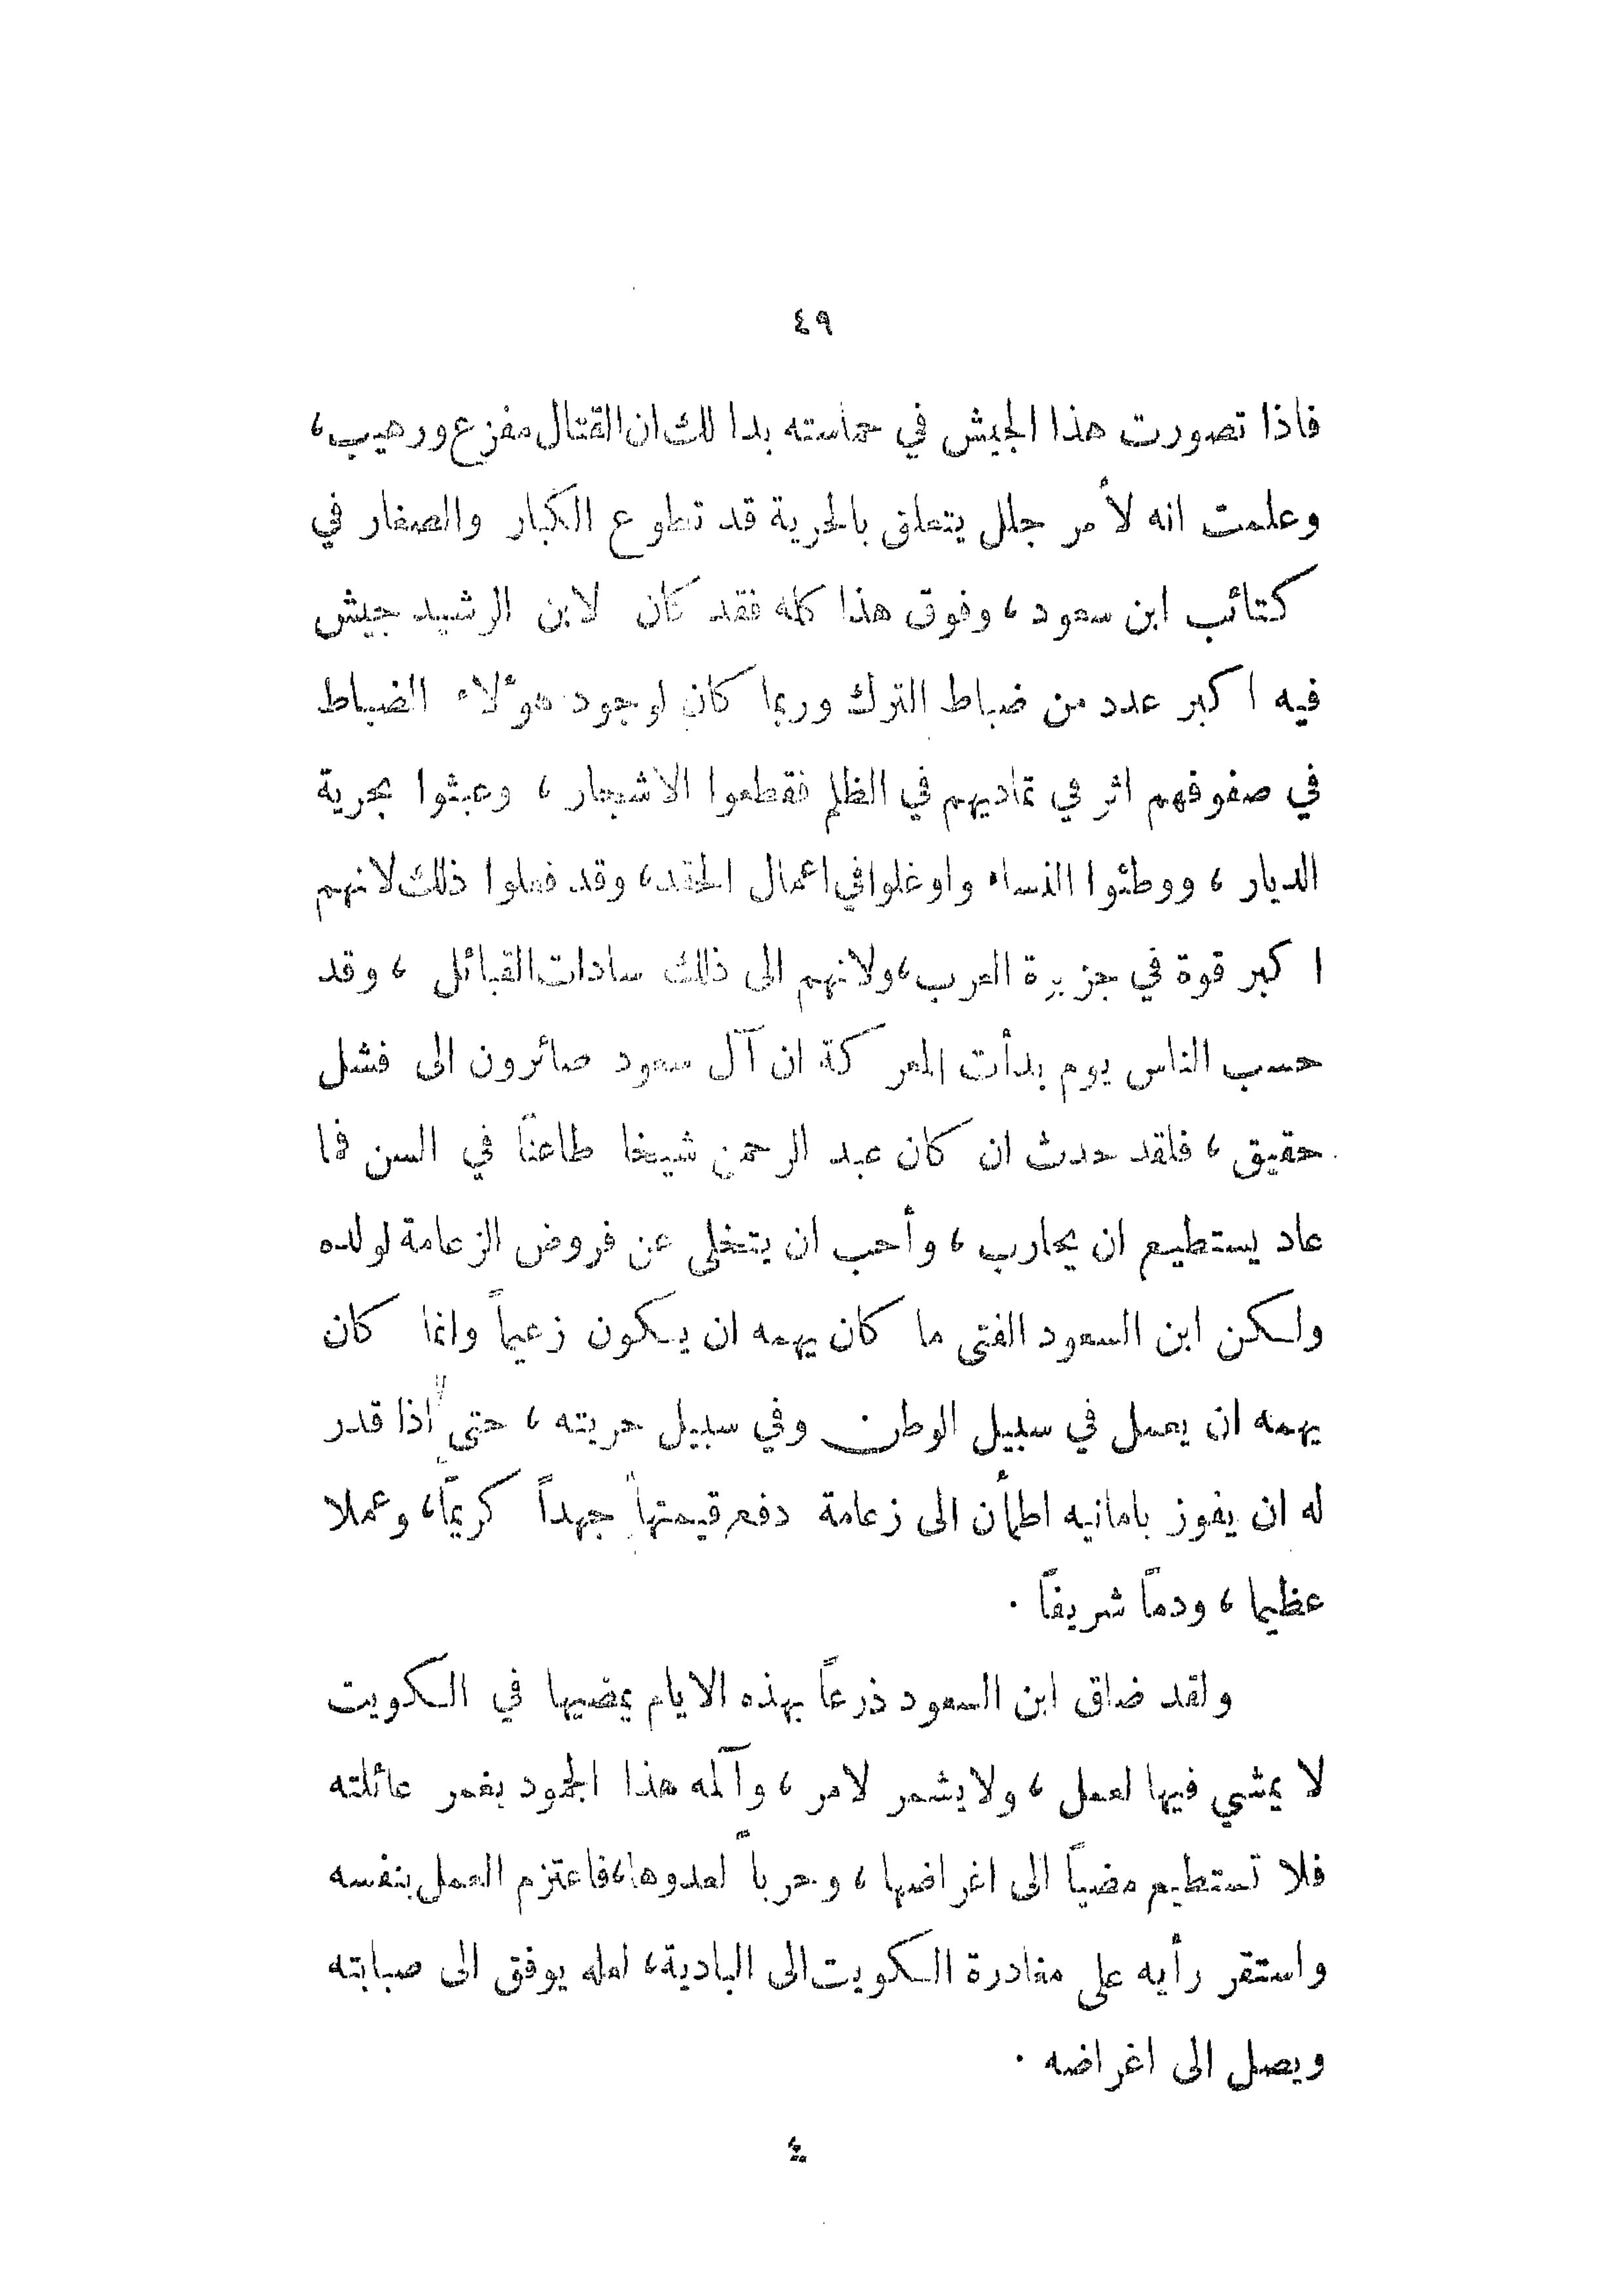 ٤٩
فاذا تصورت هذا الجيش في حماسته بدا لك ان القتال مفزع ورهيب،
وعلمت انه لأمر جلل يتعلق بالحرية قد تطوع الكبار والصغار في
كتائب ابن سعود، وفوق هذا كله فقد كان لابن الرشيد جيش
فيه اكبر عدد من ضباط الترك وربما كان لوجود هؤلاء الضباط
في صفوفهم اثر في تماديهم في الظلم فقطعوا الاشجار، وعبثوا بحرية
الديار، ووطئوا النساء واوغلوا في اعمال الحقد، وقد فعلوا ذلك لانهم
اكبر قوة في جزيرة العرب، ولانهم الى ذلك سادات القبائل، وقد
حسب الناس يوم بدأت المعركة ان آل سعود صائرون الى فشل
حقيق، فلقد حدث ان كان عبد الرحمن شيخا طاعناً في السن فما
عاد يستطيع ان يحارب، وأحب ان يتخلى عن فروض الزعامة لولده
ولكن ابن السعود الفتى ما كان يهمه ان يكون زعيماً وانما كان
يهمه ان يعمل في سبيل الوطن وفي سبيل حريته، حتى اذا قدر
له ان يفوز بامانيه اطمأن الى زعامة دفع قيمتها جهداً كريماً، وعملا
عظيما، ودماً شريفاً.
ولقد ضاق ابن السعود ذرعاً بهذه الايام يمضيها في الكويت
لا يمشي فيها لعمل، ولا يشمر لامر، وآلمه هذا الجمود يغمر عائلته
فلا تستطيع مضياً الى اغراضها، وحرباً لعدوها، فاعتزم العمل بنفسه
واستقر رأيه على مغادرة الكويت الى البادية، لعله يوفق الى صبابته
ويصل الى اغراضه.
٤